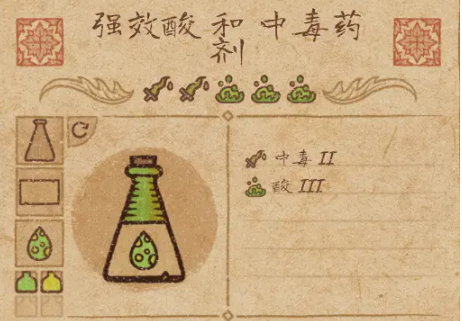 强效酸 和 中毒药
剂
中毒 II
酸 III